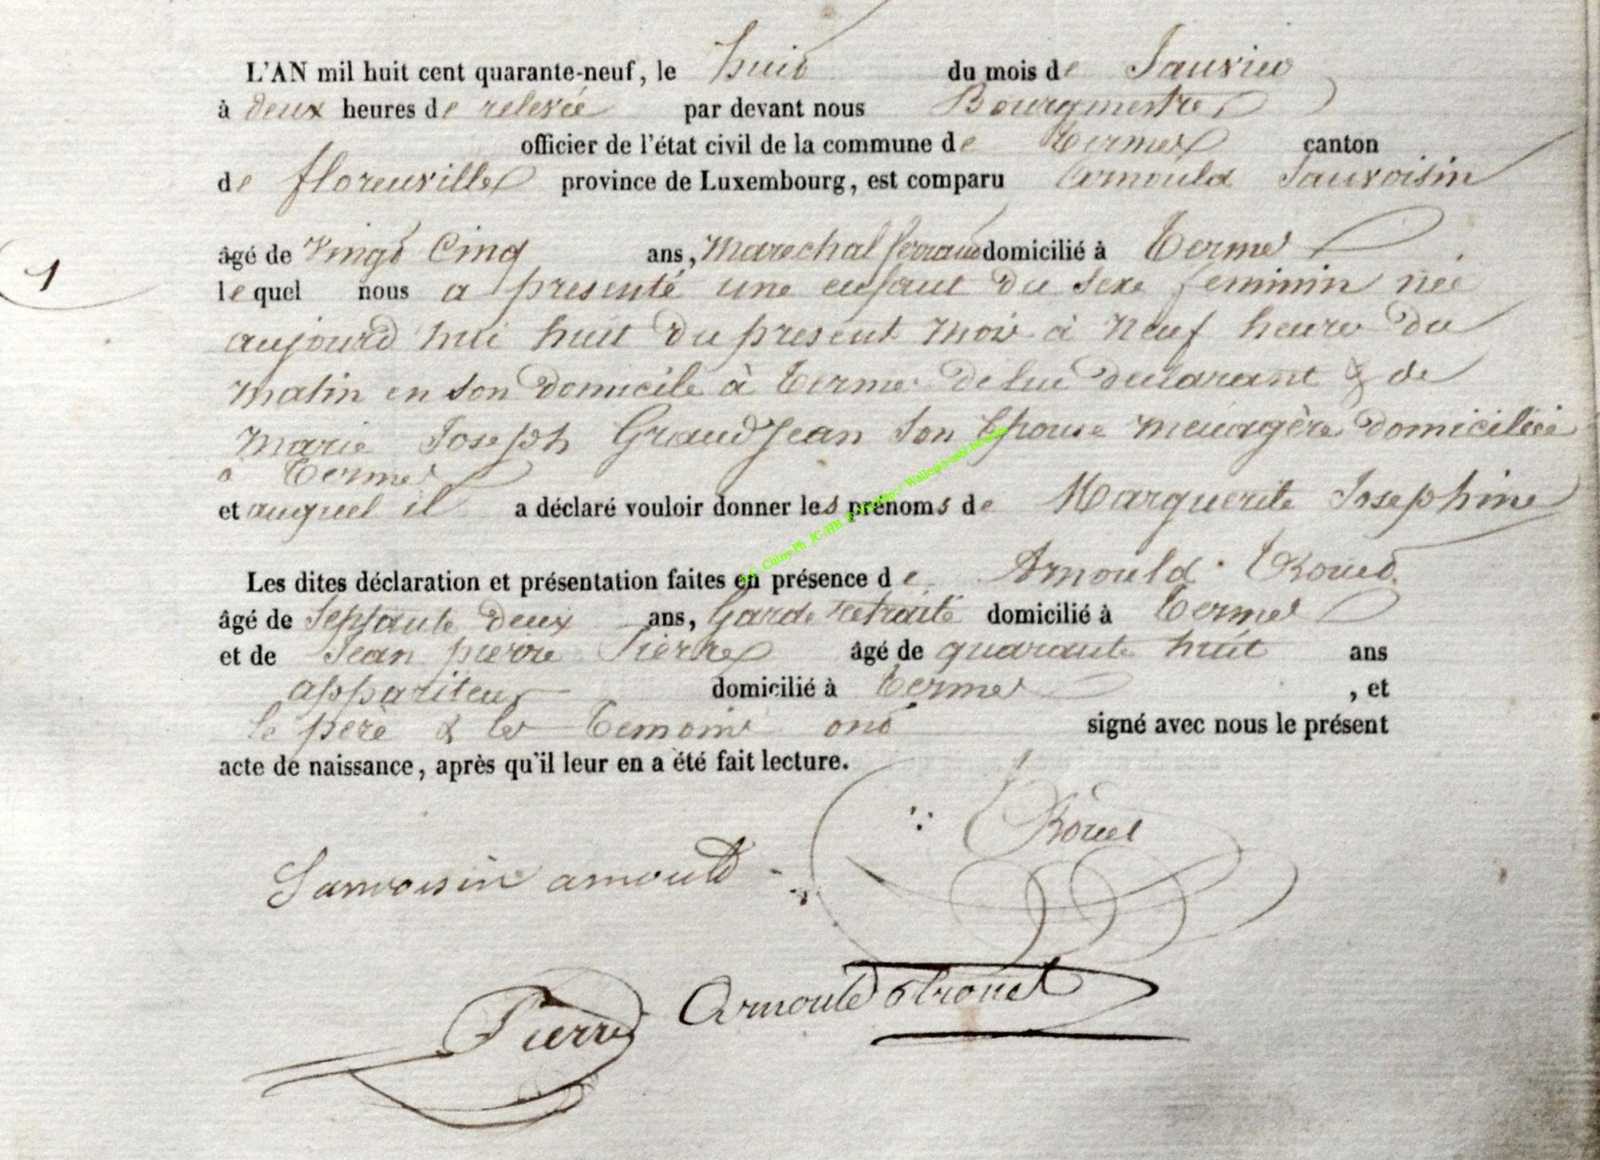 L'AN mil huit cent quarante-neuf, le huit du mois de Janvier
à deux heures de relevée par devant nous Bourgmestre
officier de l'état civil de la commune de Termes canton
de florenville province de Luxembourg, est comparu Arnould Sauvoisin
âgé de vingt Cinq ans, Marechal ferrand domicilié à Termes
1
lequel nous a presenté une enfant du sexe feminin née
aujourd hui huit du present mois à neuf heures du
matin en son domicile à Termes de lui declarant & de
Marie Joseph GrandJean son Epouse menagère domiciliée
a Termes
et auquel il a déclaré vouloir donner les prénoms de Marguerite Josephine
Les dites déclaration et présentation faites en présence de Arnould
âgé de Septante deux ans, Garde retraité domicilié à Termes
et de Jean pierre Pierre âgé de quarante huit ans
appariteur domicilié à Termes , et
le père & les Temoins ont signé avec nous le présent
acte de naissance, après qu'il leur en a été fait lecture.
Sauvoisin arnould
Pierre
Arnould